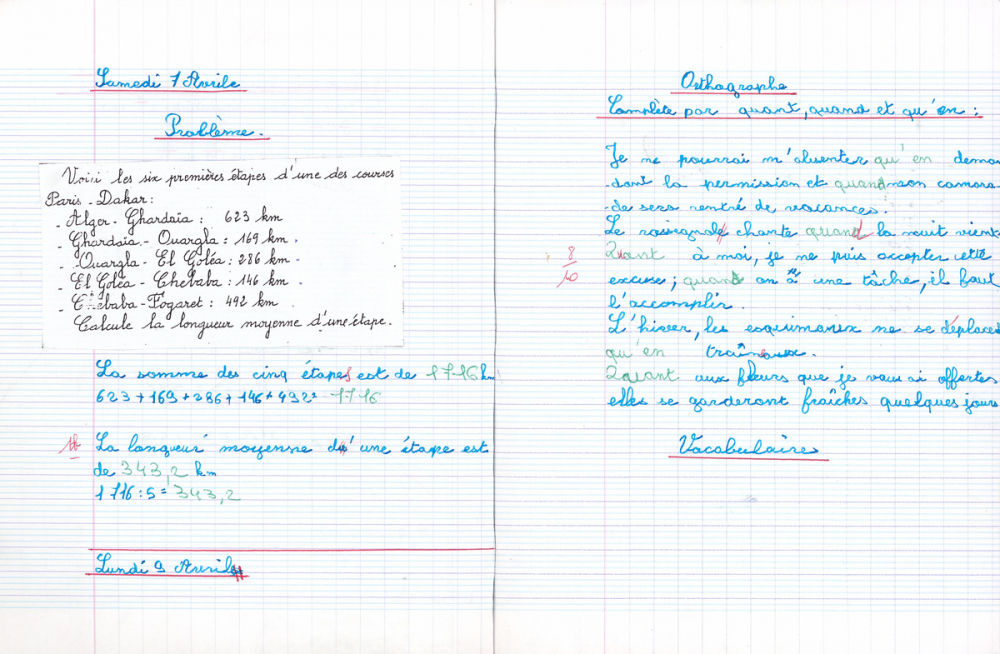 Samedi 7 Avrile
Problème.
Voici les six premières étapes d'une des courses
Paris-Dakar:
- Alger-Ghardaïa : 623 km
- Ghardaïa - Ouargla : 169 km.
- Ouargla - El Goléa : 286 km.
- El Goléa - Chebaba : 146 km.
- Chebaba - Fogaret : 492 km.
Calcule la longueur moyenne d'une étape.
La somme des cinq étapes est de 1716 km
623+169+286+146+492= 1716
tb La longueur moyenne d'une étape est
de 343,2 km
1716:5=343,2
Lundi 9 Avril
Orthographe
Complète par quant, quand et qu'en :
Je ne pourrai m'absenter qu'en deman
dant la permission et quand mon camara-
de sera rentré de vacances.
Le rossignol chante quand la nuit vient
8/10
Quant à moi, je ne puis accepter cette
excuse; quand on a une tâche, il faut
l'accomplir.
L'hiver, les esquimaux ne se déplacent
qu'en traîneaux.
Quant aux fleurs que je vous ai offertes
elles se garderont fraîches quelques jours
Vocabulaires